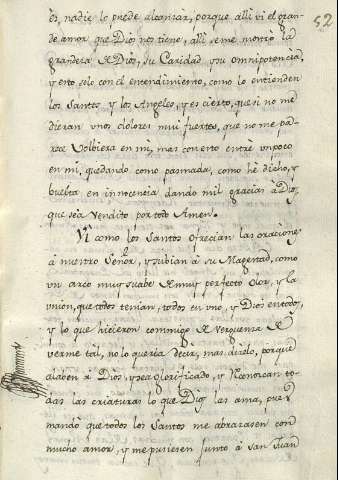 52
es, nadie lo puede alcanzar, porque alli vi el gran-
de amor que Dios nos tiene, alli se me mostró la
grandeza de Dios, su Caridad, su omnipotencia,
y esto solo con el entendimiento, como lo entienden
los Santos y los Angeles, y es cierto, que si no me
dieran unos dolores mui fuertes, que no me pa-
rece Volbiera en mi, mas con esto entrè un poco
en mi, quedando como pasmada, como he dicho, y
buelta en innocencia, dando mil gracias à Dios,
que sea Vendito por todo Amen.
Vi como los Santos ofrecian las oraciones
à nuestro Señor, y subian à su Magestad, como
un arco mui suabe de mui perfecto Olor, y la
union, que todos tenian, todos en uno, y Dios en todos,
y lo que hicieron commigo de Verguenza de
verme tal, no lo queria decir, mas dirèlo, porque
alaben à Dios, y sea glorificado, y Reconozcan to-
das las criaturas lo que Dios las ama, pues
mandò que todos los Santos me abrazasen con
mucho amor, y me pusiesen junto à San Juan